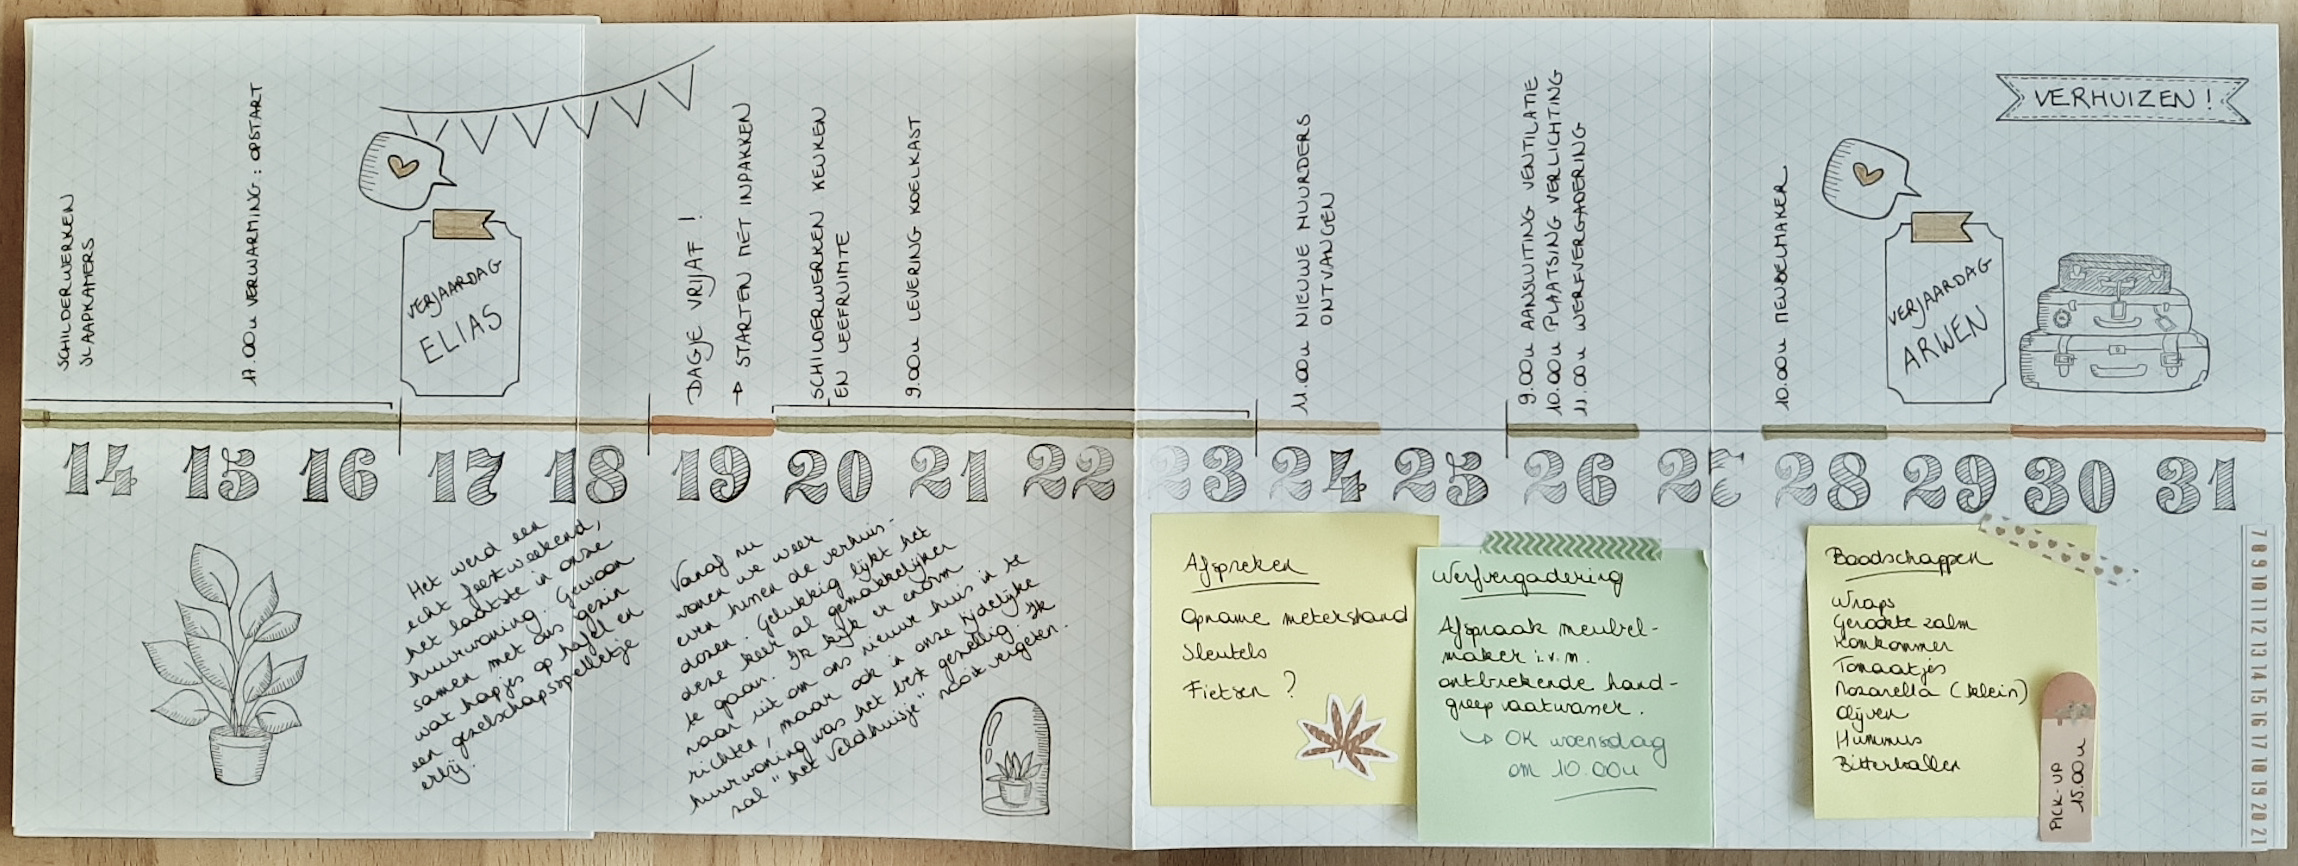 SCHILDERWERKEN
SLAAPKAMERS
17.00u VERWARMING: OPSTART
VERJAARDAG
ELIAS
DAGJE VRIJAF !
→ STARTEN MET INPAKKEN
SCHILDERWERKEN KEUKEN
EN LEEFRUIMTE
9.00u LEVERING KOELKAST
11.00u NIEUWE HUURDERS
ONTVANGEN
9.00u AANSLUITING VENTILATIE
10.00u PLAATSING VERLICHTING
11.00u WERFVERGADERING
10.00u MEUBELMAKER
VERJAARDAG
ARWEN
VERHUIZEN !
14 15 16 17 18 19 20 21 22 23 24 25 26 27 28 29 30 31
Het werd een
echt feestweekend,
het laatste in onze
huurwoning. Gewoon
samen met ons gezin
wat hapjes op tafel en
een gezelschapsspelletje
erbij.
Vanaf nu
wonen we weer
even tussen de verhuis-
dozen. Gelukkig lijkt het
deze keer al gemakkelijker
te gaan. Ik kijk er enorm
naar uit om ons nieuwe huis in te
richten, maar ook in onze tijdelijke
huurwoning was het best gezellig. Ik
zal "het Veldhuisje" nooit vergeten.
Afspreken
Opname meterstand
Sleutels
Fietsen ?
Werfvergadering
Afspraak meubel-
maker i.v.m.
ontbrekende hand-
greep vaatwasser.
↳ OK woensdag
om 10.00u
Boodschappen
Wraps
Gerookte zalm
Komkommer
Tomaatjes
Mozarella (klein)
Olijven
Hummus
Bitterballen
PICK-UP
15.00u
7 8 9 10 11 12 13 14 15 16 17 18 19 20 21